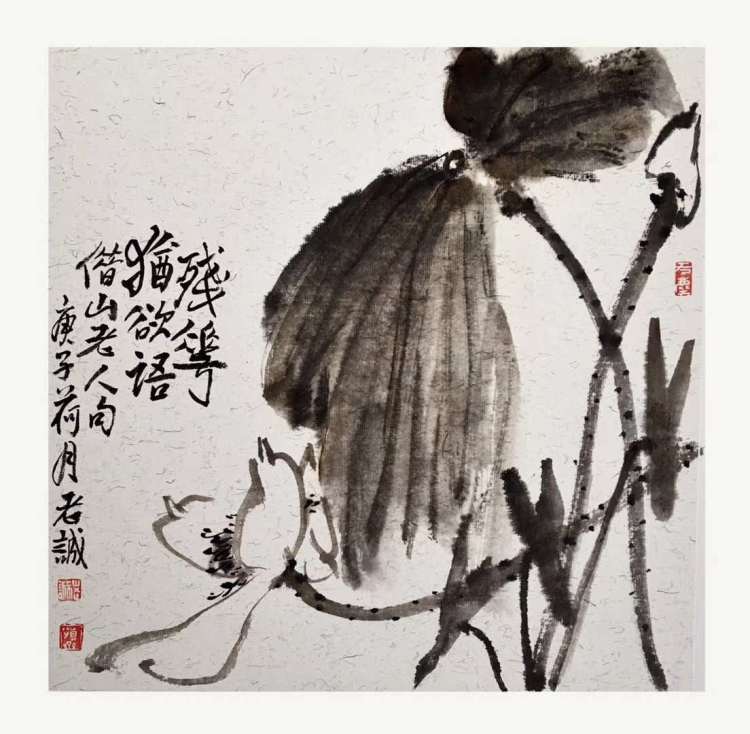 残華
猶欲語
借山老人句
庚子荷月老誠